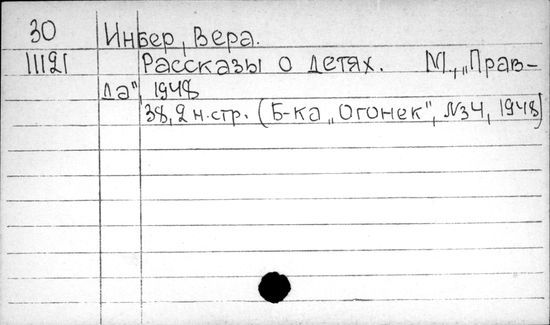 30 Инбер, Вера.
11121 Рассказы о детях. М., „Прав-
да", 1948
38, 2 н.стр. (Б-ка „Огонек", №34, 1948)